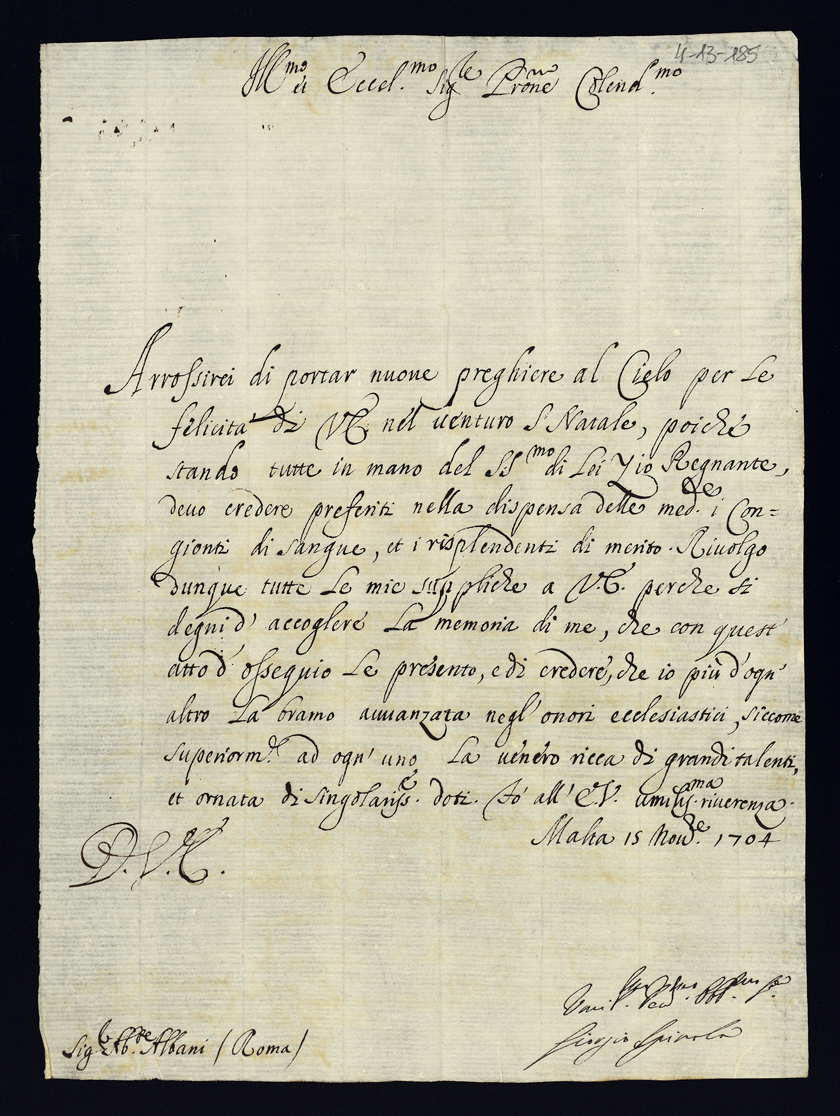 4-13-185
Ill.mo et Eccel.mo Sig.re Prone Colend.mo
Arrossirei di portar nuove preghiere al Cielo per le
felicità di V.E. nel venturo S Natale, poiche
stando tutte in mano del SS.mo di Lei Zio Regnante,
devo credere preferiti nella dispensa delle med.e i Con=
gionti di sangue, et i risplendenti di merito. Rivolgo
dunque tutte le mie suppliche a V.E. perche si
degni d'accoglere la memoria di me, che con quest'
atto d'ossequio le presento, e di credere, che io più d'ogn'
altro la bramo avvanzata negl'onori ecclesiastici, siccome
superiorm.te ad ogn'uno la venero ricca di grandi talenti,
et ornata di singolariss.e doti. Fò all'E.V. umiliss.ma riverenza.
Malta 15 Nov.re 1704
D.V.E.
Giorgio Spinola
Sig.r Ab.te Albani (Roma)